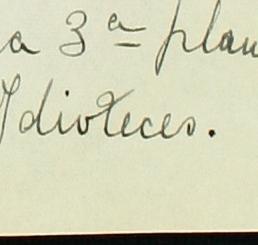 a 3ª plan
Idioteces.